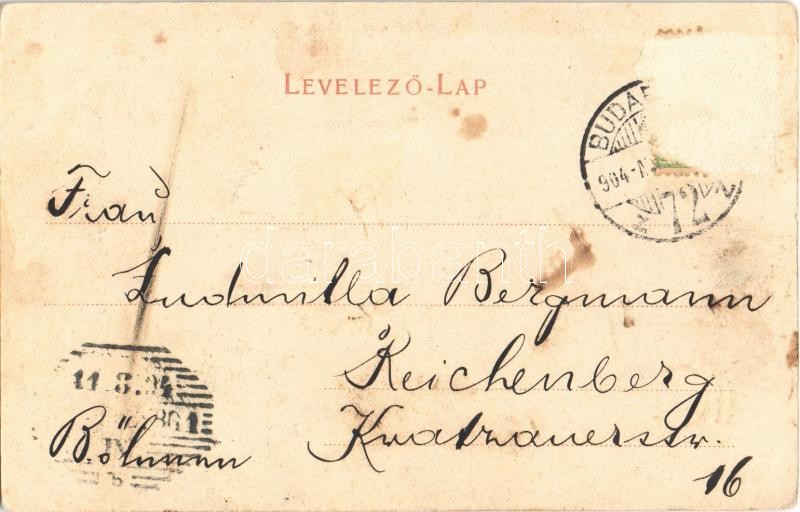 LEVELEZŐ-LAP
BUDAP
904
Frau
Ludmilla Bergmann
Reichenberg
Kratzauerstr.
16
11.8.04
Böhmen
darabanth